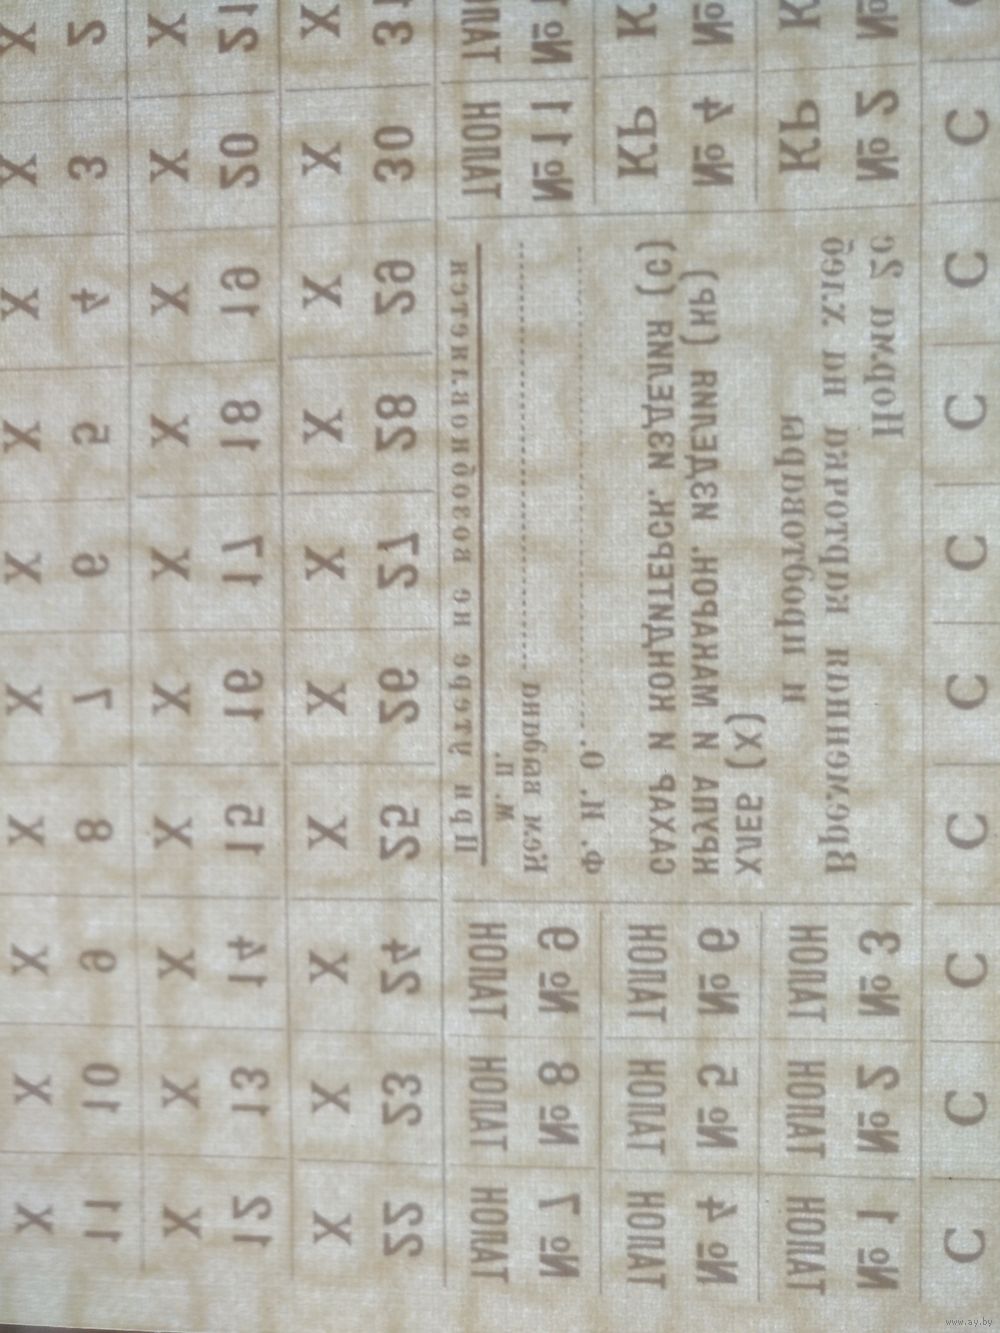 С С С С С С С С С
№ 1 № 2 № 3 Норма 2с № 2 №
Временная карточка на хлеб
ТАЛОН ТАЛОН ТАЛОН и продтовары КР К
ХЛЕБ (Х)
№ 4 № 5 № 6 КРУПА И МАКАРОН. ИЗДЕЛИЯ (КР) № 4 №
ТАЛОН ТАЛОН ТАЛОН САХАР И КОНДИТЕРСК. ИЗДЕЛИЯ (С) КР К
Ф. И. О.
№ 7 № 8 № 9 Кем выдана № 11 №
М. П.
ТАЛОН ТАЛОН ТАЛОН При утере не возобновляется ТАЛОН
22 23 24 25 26 27 28 29 30 31
Х Х Х Х Х Х Х Х Х Х
12 13 14 15 16 17 18 19 20 21
Х Х Х Х Х Х Х Х Х Х
11 10 9 8 7 6 5 4 3 2
Х Х Х Х Х Х Х Х Х Х
www.ay.by